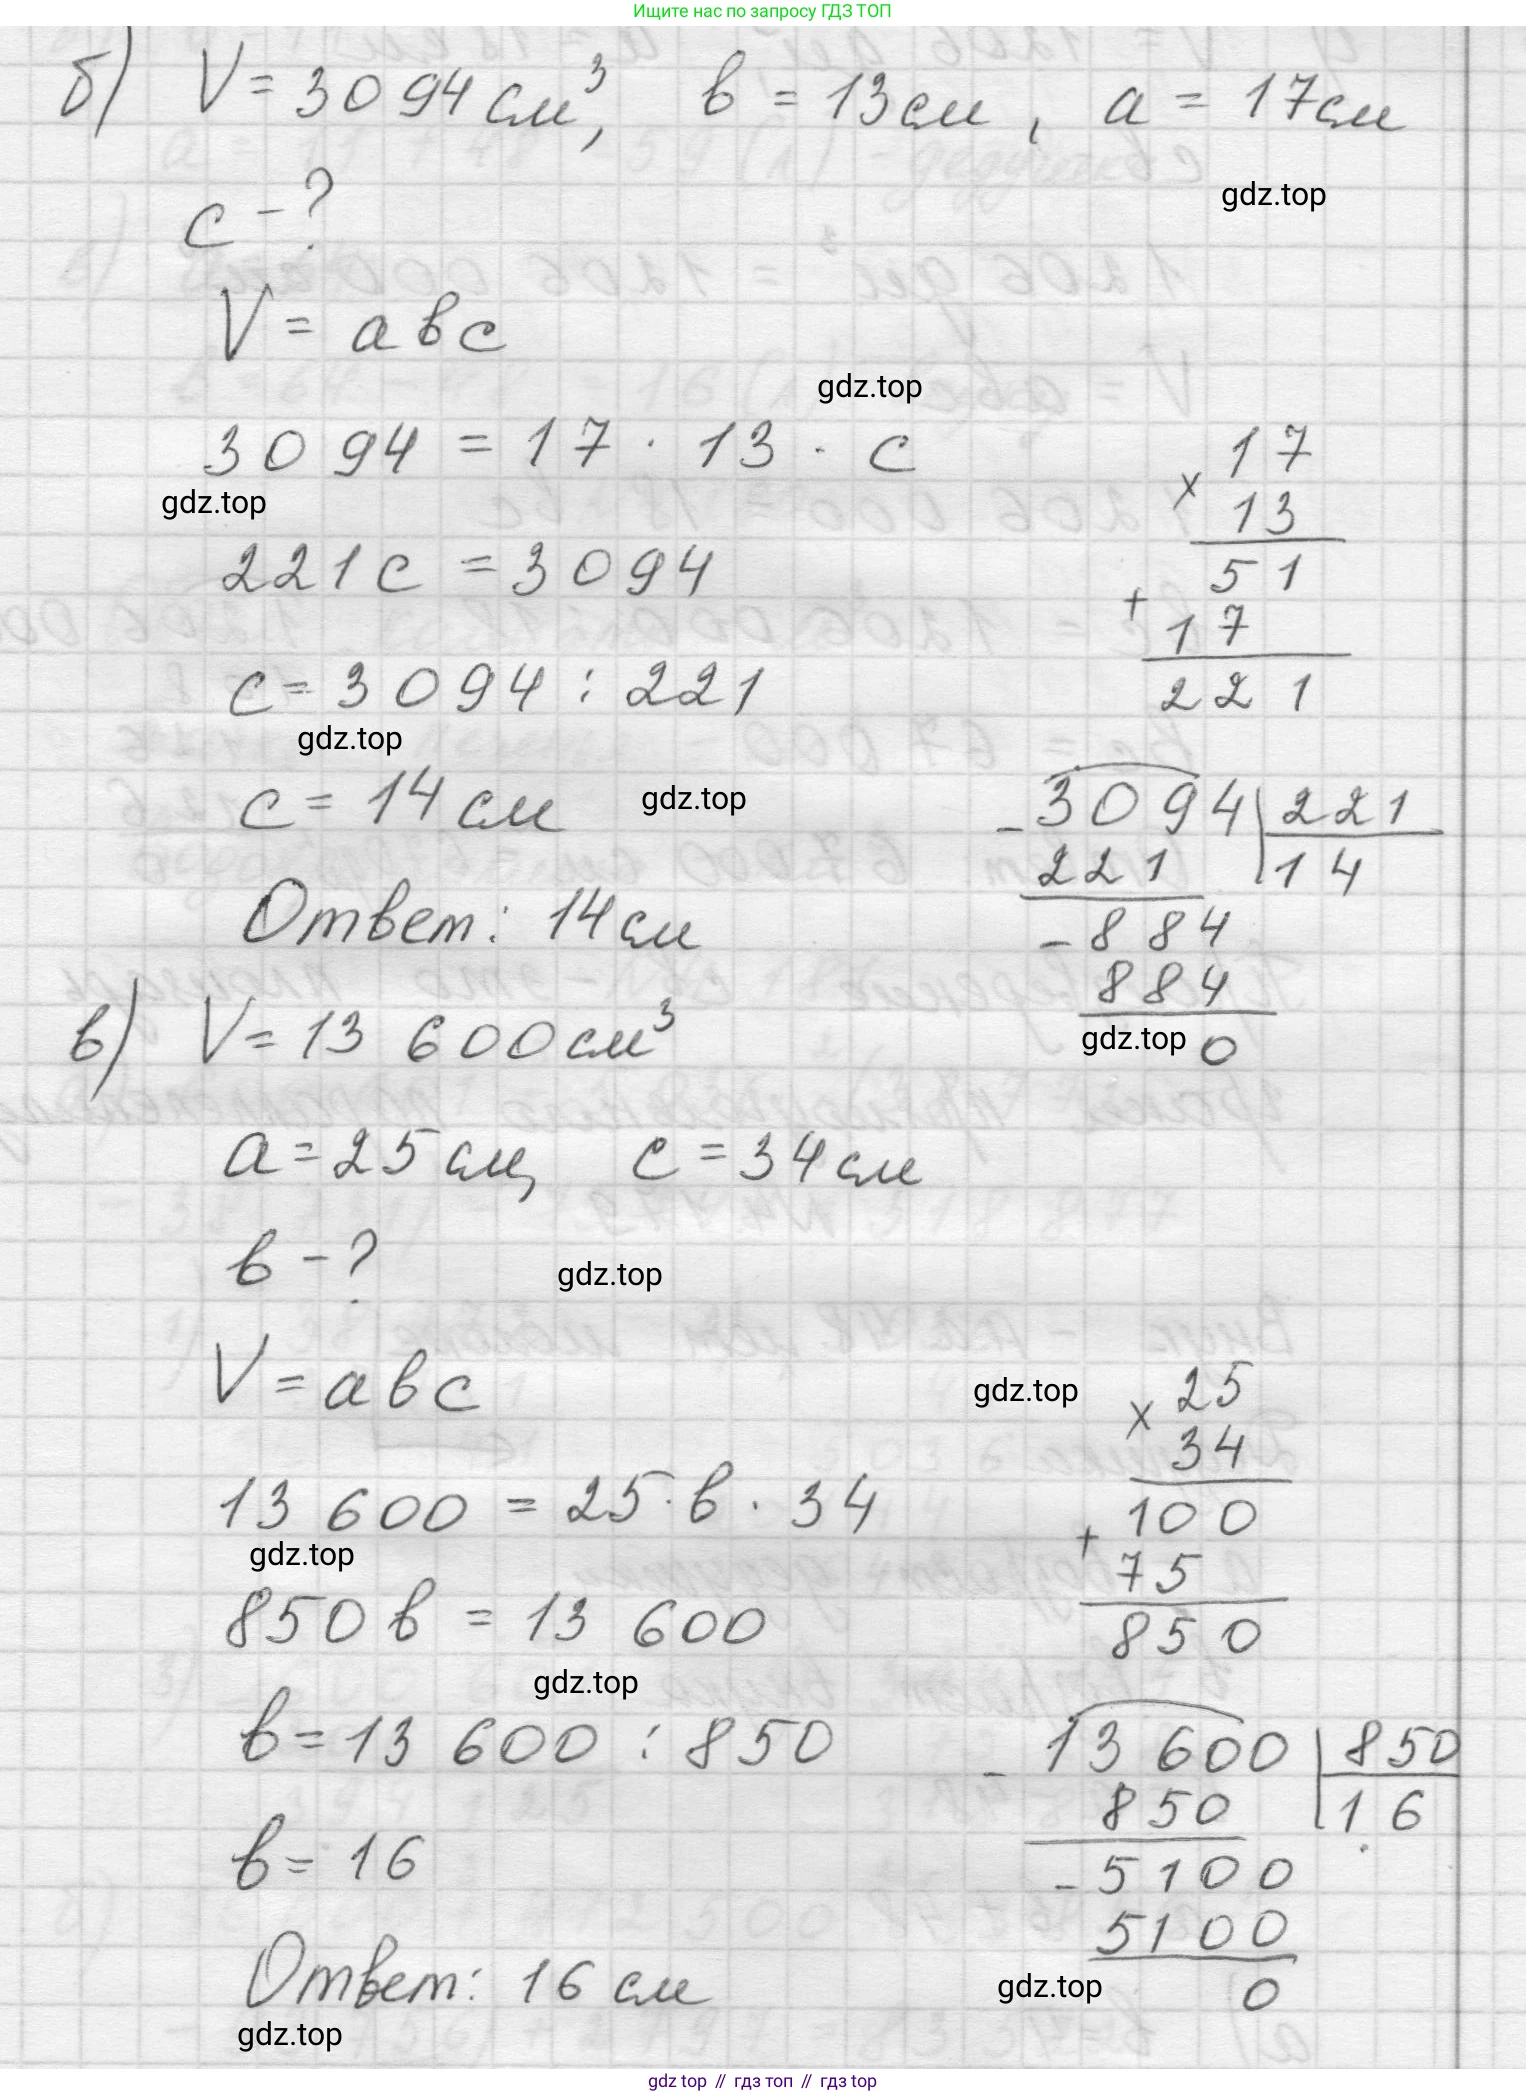 Ищите нас по запросу ГДЗ ТОП
б) V = 3094 см³, в = 13 см, а = 17 см
gdz.top
с - ?
V = а в с
gdz.top
3094 = 17 · 13 · с
gdz.top
17
× 13
51
+ 17
221
221 с = 3094
с = 3094 : 221
gdz.top
с = 14 см
gdz.top
- 3094 | 221
221 | 14
- 884
884
gdz.top 0
Ответ: 14 см
в) V = 13 600 см³
а = 25 см, с = 34 см
в - ?
gdz.top
V = а в с
gdz.top
× 25
34
100
+ 75
850
13 600 = 25 · в · 34
gdz.top
850 в = 13 600
gdz.top
в = 13 600 : 850
- 13 600 | 850
850 | 16
- 5100
5100
gdz.top 0
в = 16
Ответ: 16 см
gdz.top
gdz top // гдз топ // gdz top